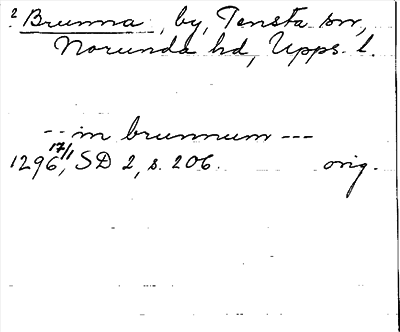 2 Brunna, by, Tensta sn,
Norunda hd, Upps. l.
-- in brunnum ---
1296 17/1, SD 2, s. 206. orig.